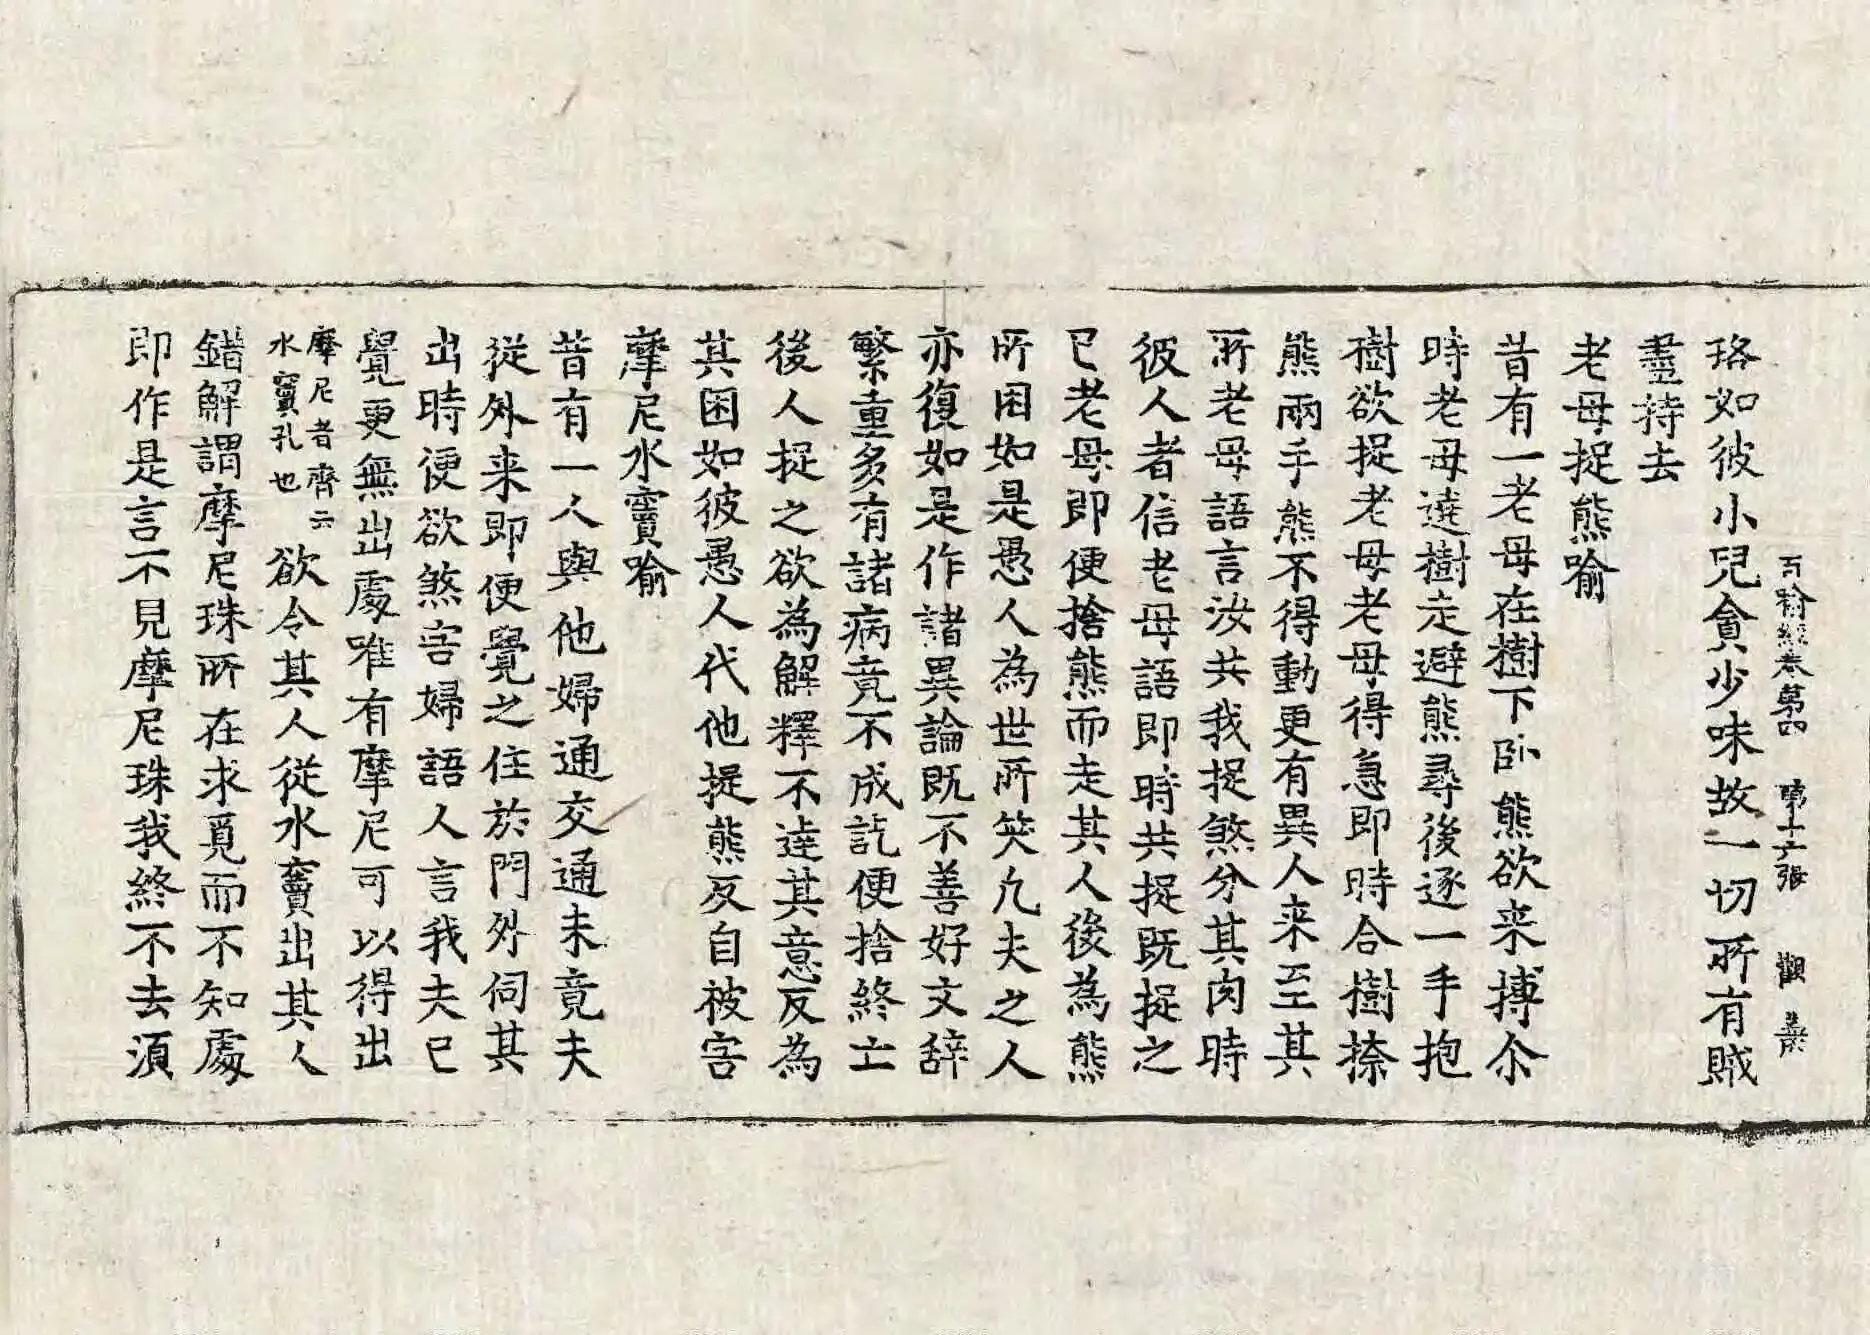 百喻經卷第四 第十六張 觀
珞如彼小兒貪少味故一切所有賊
盡持去
老母捉熊喻
昔有一老母在樹下卧熊欲来搏尒
時老母遶樹走避熊尋後逐一手抱
樹欲捉老母老母得急即時合樹捺
熊兩手熊不得動更有異人来至其
所老母語言汝共我捉煞分其肉時
彼人者信老母語即時共捉既捉之
已老母即便捨熊而走其人後為熊
所困如是愚人為世所笑凡夫之人
亦復如是作諸異論既不善好文辞
繁重多有諸病竟不成訖便捨終亡
後人捉之欲為解釋不達其意反為
其困如彼愚人代他捉熊反自被害
摩尼水竇喻
昔有一人與他婦通交通未竟夫
從外来即便覺之住於門外伺其
出時便欲煞害婦語人言我夫已
覺更無出處唯有摩尼可以得出
摩尼者齊云
水竇孔也
欲令其人從水竇出其人
錯解謂摩尼珠所在求覓而不知處
即作是言不見摩尼珠我終不去須